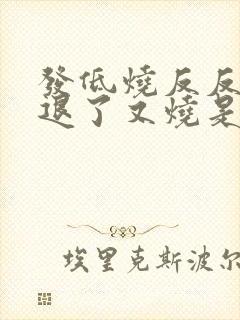 發低燒反反
退了又燒是
埃里克斯波尔